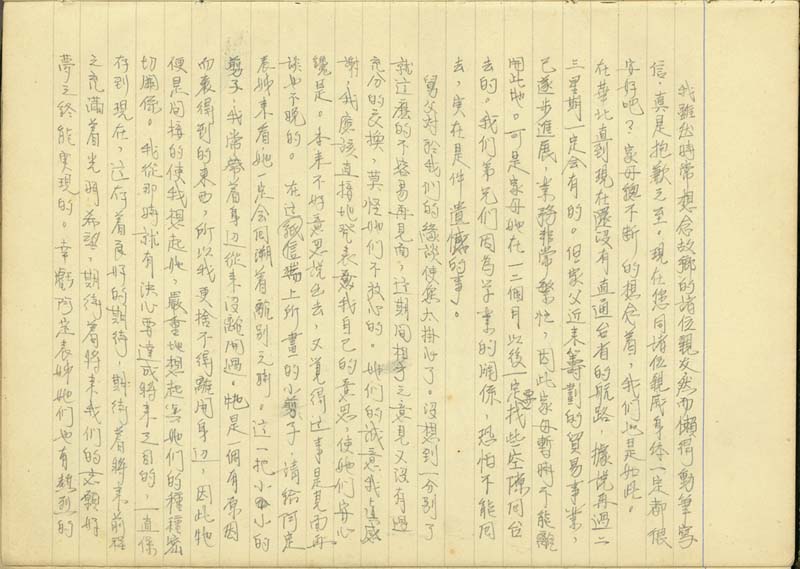 我雖然時常想念故鄉的諸位親友然而懶得動筆寫
信,真是抱歉之至。現在您同諸位親戚身体一定都很
安好吧?家母總不斷的想念着,我們也是如此。
在華北直到現在還沒有直通台省的航路 據說再過二
三星期一定会有的。但家父近來籌劃的貿易事業,
已逐步進展,業務非常繁忙,因此家母暫時不能離
開此地。可是家母她在一二個月以後一定要找些空隙回台
去的。我們弟兄们因為学業的関係,恐怕不能回
去,实在是件遺憾的事。
舅父对於我们的緣談使您太掛心了。沒想到一分別了
就这麼的不容易再見面,这期間相互之意見又沒有過
充分的交換,莫怪她们不放心的。她们的誠意我
謝,我應該直接地発表我自己的意思,使她们安心
纔是。本來不好意思說出去,又覚得这事是見面再
談也不晚的。 在这紙信端上所畫的小剪子,請給阿定
表姊來看,她一定会回溯着離別之時。这一把小小的
剪子,我常帶着身边從来沒離開過。牠是一個有原因
而裹得到的東西,所以我更捨不得離開身边,因此牠
便是间接的使我想起她,嚴重地想起与她们的種種密
切関係。我從那時就有決心要達成將来之目的,一直保
存到現在,这存着良好的期待,期待着將来前程
之充滿着光明希望,期待着將来我们的志願好
夢之终能实現的。幸虧阿定表姊她们也有 的